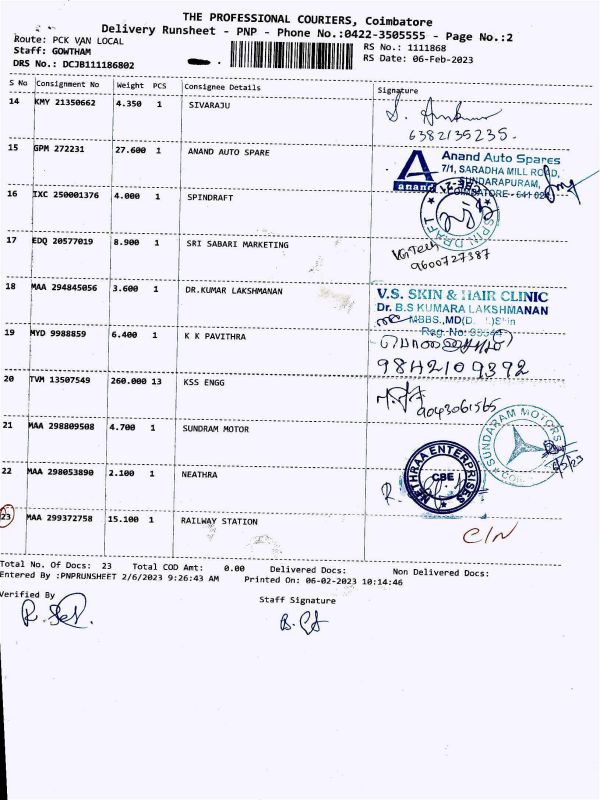 THE PROFESSIONAL COURIERS, Coimbatore
Delivery Runsheet - PNP - Phone No.:0422-3505555 - Page No.:2
Route: PCK VAN LOCAL
RS No.: 1111868
Staff: GOWTHAM
RS Date: 06-Feb-2023
DRS No.: DCJB111186802
S No Consignment No Weight PCS Consignee Details Signature
14 KMY 21350662 4.350 1 SIVARAJU
6382135235.
15 GPM 272231 27.600 1 ANAND AUTO SPARE
Anand Auto Spares
7/1, SARADHA MILL ROAD,
SUNDARAPURAM,
COIMBATORE - 641 024
anand
16 IXC 250001376 4.000 1 SPINDRAFT
SPIN DRAFT
17 EDQ 20577019 8.900 1 SRI SABARI MARKETING
VG Tech
9600727387
18 MAA 294845056 3.600 1 DR.KUMAR LAKSHMANAN
V.S. SKIN & HAIR CLINIC
Dr. B.S KUMARA LAKSHMANAN
MBBS.,MD(D. L)Skin
Reg. No:
19 MYD 9988859 6.400 1 K K PAVITHRA
9842109392
20 TVM 13507549 260.000 13 KSS ENGG
9043061565
21 MAA 298809508 4.700 1 SUNDRAM MOTOR
SUNDARAM MOTORS
22 MAA 298053890 2.100 1 NEATHRA
NETHRAA ENTERPRISES
CBE
23 MAA 299372758 15.100 1 RAILWAY STATION
C/N
Total No. Of Docs: 23 Total COD Amt: 0.00 Delivered Docs: Non Delivered Docs:
Entered By :PNPRUNSHEET 2/6/2023 9:26:43 AM Printed On: 06-02-2023 10:14:46
Verified By
Staff Signature